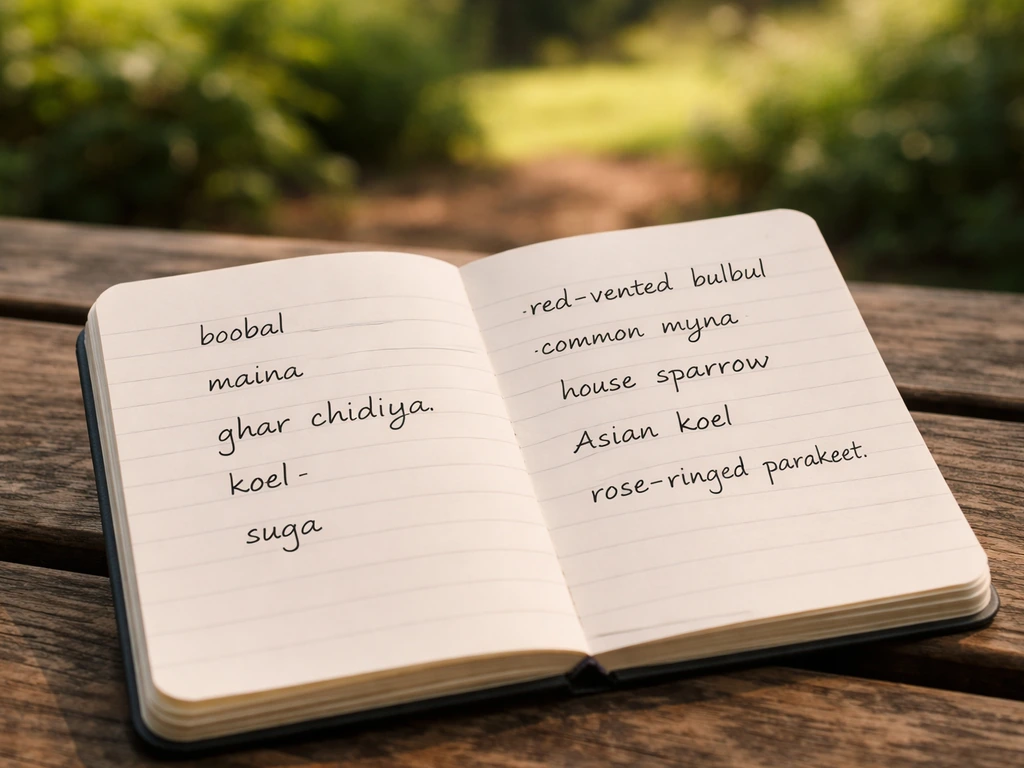 boobal
maina
ghar chidiya.
koel -
suga
·red-vented bulbul
·common myna
house sparrow
Asian koel
rose-ringed parakeet.